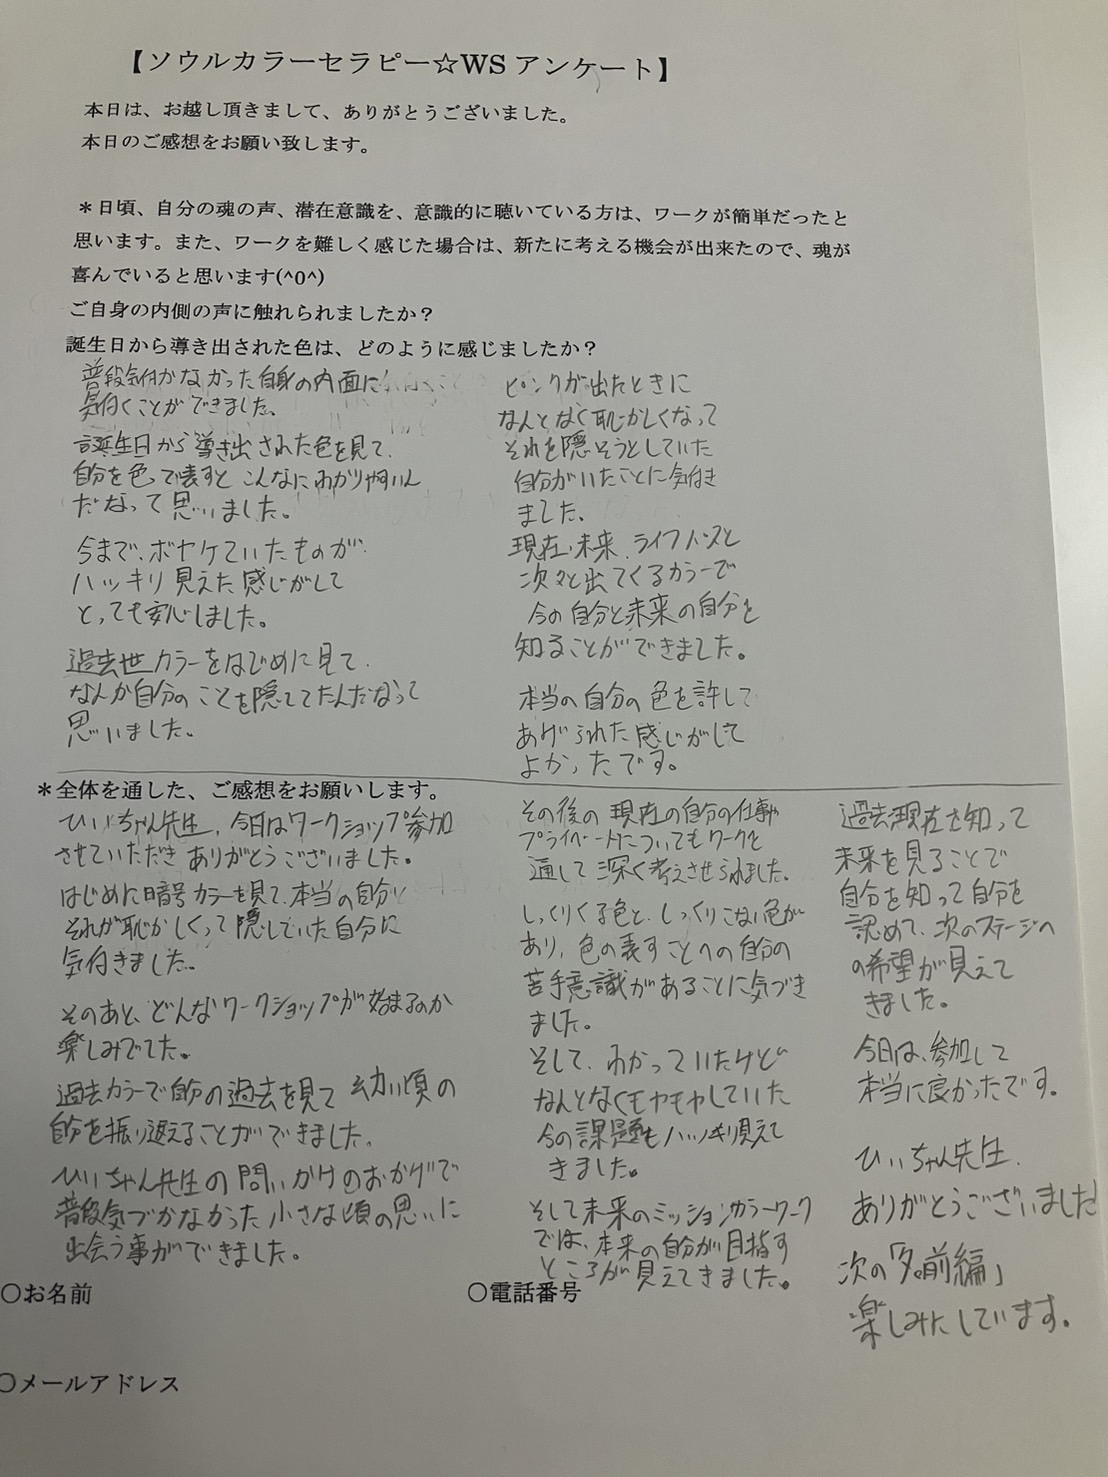 【ソウルカラーセラピー☆WS アンケート】
本日は、お越し頂きまして、ありがとうございました。
本日のご感想をお願い致します。
＊日頃、自分の魂の声、潜在意識を、意識的に聴いている方は、ワークが簡単だったと
思います。また、ワークを難しく感じた場合は、新たに考える機会が出来たので、魂が
喜んでいると思います(^0^)
ご自身の内側の声に触れられましたか？
誕生日から導き出された色は、どのように感じましたか？
普段気付かなかった自身の内面に
気付くことができました、
誕生日から導き出された色を見て、
自分を色で表すとこんなにわかりやすいん
だなって思いました。
今まで、ボヤケていたものが、
ハッキリ見えた感じがして
とっても安心しました。
過去世カラーをはじめに見て、
なんか自分のことを隠してたんだなって
思いました。
ピンクが出たときに
なんとなく恥かしくなって
それを隠そうとしていた
自分がいたことに気付き
ました、
現在、未来、ライフパースと
次々と出てくるカラーで
今の自分と未来の自分を
知ることができました。
本当の自分の色を許して
あげられた感じがして
よかったです。
＊全体を通した、ご感想をお願いします。
ひいちゃん先生、今日はワークショップ参加
させていただきありがとうございました。
はじめに暗号カラーを見て、本当の自分と
それが恥かしくって隠していた自分に
気付きました。
そのあと、どんなワークショップが始まるのか
楽しみでした。
過去カラーで自分の過去を見て幼い頃の
自分を振り返えることができました、
ひいちゃん先生の問いかけのおかげで
普段気づかなかった小さな頃の思いに
出会う事ができました。
その後の現在の自分の仕事や
プライベートについてもワークを
通して深く考えさせられました。
しっくりくる色と、しっくりこない色が
あり、色の表すことへの自分の
苦手意識があることに気づき
ました。
そして、わかっていたけど
なんとなくモヤモヤしていた
今の課題もハッキリ見えて
きました。
そして未来のミッションカラーワーク
では、本来の自分が目指す
ところが見えてきました。
過去現在を知って
未来を見ることで
自分を知って自分を
認めて、次のステージへ
の希望が見えて
きました。
今日は、参加して
本当に良かったです。
ひいちゃん先生、
ありがとうございました
次の「名前編」
楽しみにしています。
○お名前
○電話番号
○メールアドレス